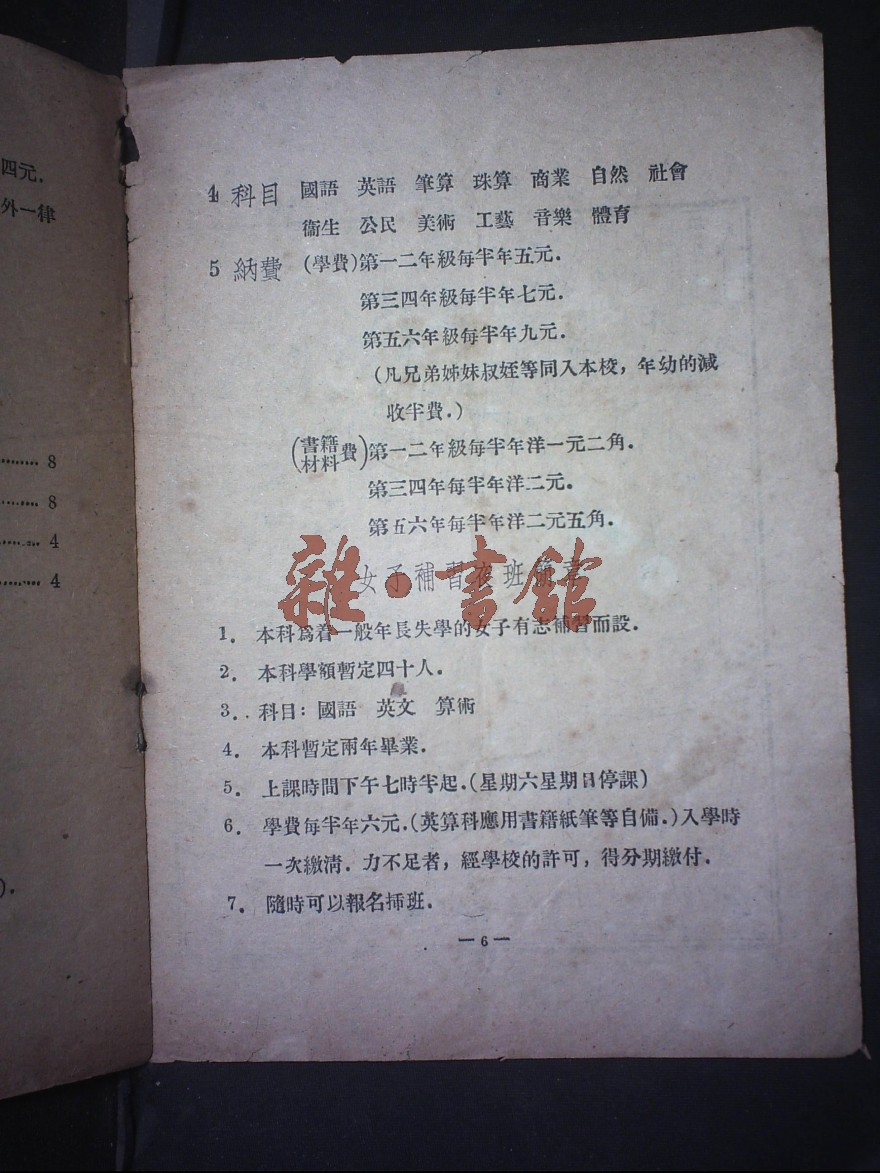 四元.
外一律
……… 8
……… 8
……… 4
……… 4
).
4 科目 國語 英語 筆算 珠算 商業 自然 社會
衞生 公民 美術 工藝 音樂 體育
5 納費 (學費)第一二年級每半年五元.
第三四年級每半年七元.
第五六年級每半年九元.
(凡兄弟姊妹叔姪等同入本校, 年幼的減
收半費.)
(書籍材料費)第一二年級每半年洋一元二角.
第三四年每半年洋二元.
第五六年每半年洋二元五角.
雜·書館
女子補習夜班簡章
1. 本科爲着一般年長失學的女子有志補習而設.
2. 本科學額暫定四十人.
3. 科目: 國語 英文 算術
4. 本科暫定兩年畢業.
5. 上課時間下午七時半起.(星期六星期日停課)
6. 學費每半年六元.(英算科應用書籍紙筆等自備.)入學時
一次繳清. 力不足者, 經學校的許可, 得分期繳付.
7. 隨時可以報名揷班.
— 6 —